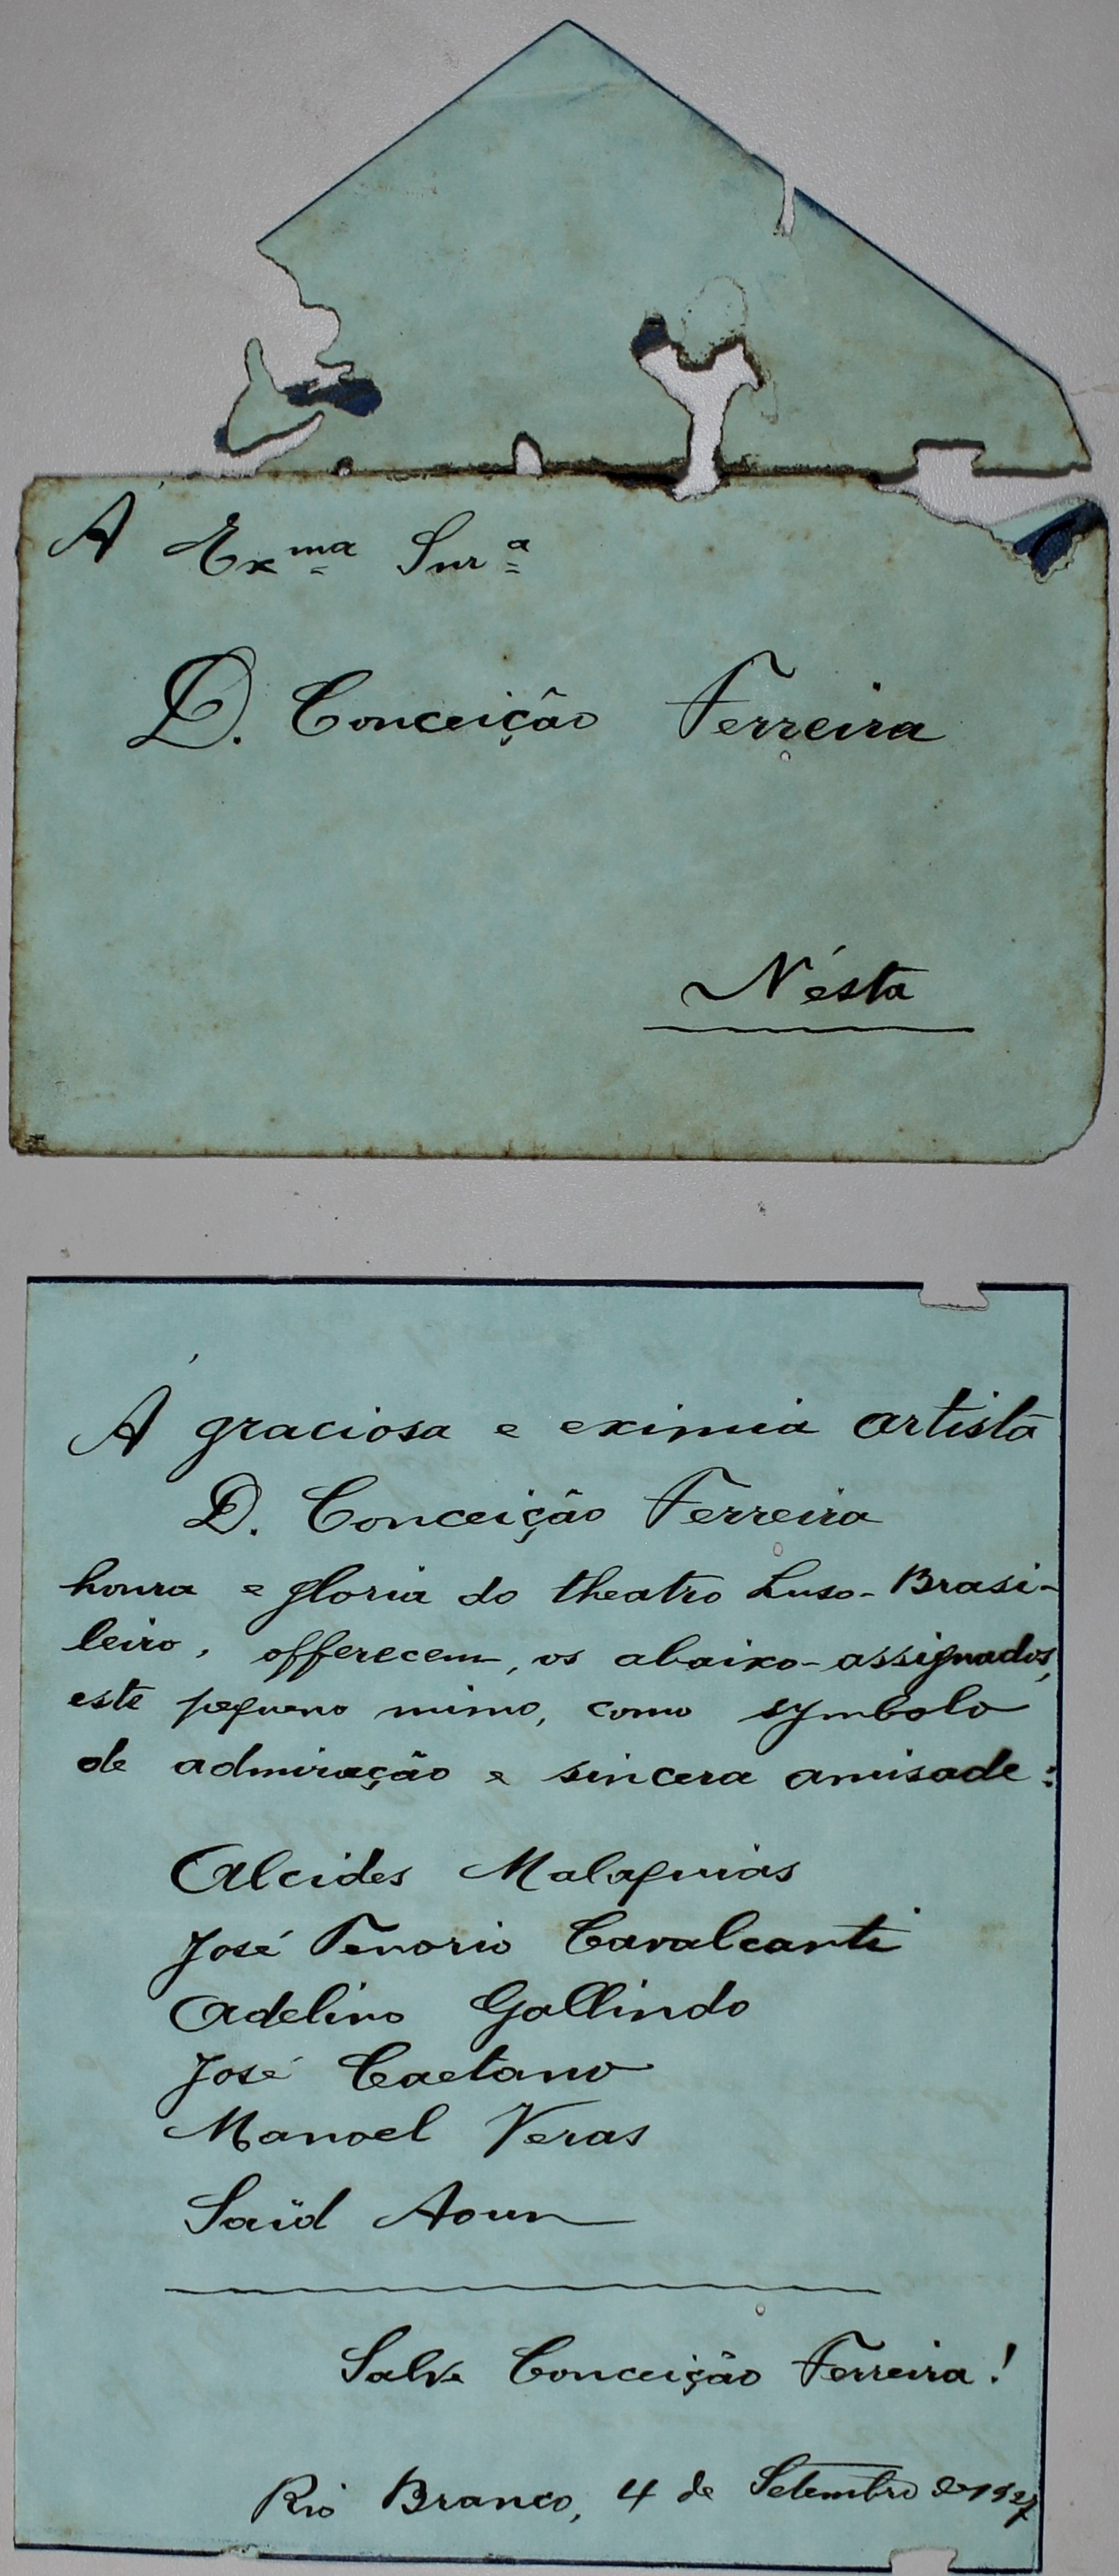 À Exma Snra
D. Conceição Ferreira
N'ésta
À graciosa e eximia artista
D. Conceição Ferreira
honra e gloria do theatro Luso-Brasi-
leiro, offerecem, os abaixo-assignados,
este pequeno mimo, como symbolo
de admiração e sincera amisade:
Alcides Malaquias
José Tenorio Cavalcanti
Adelino Gallindo
José Caetano
Manoel Veras
Saïd Aoun
Salve Conceição Ferreira!
Rio Branco, 4 de Setembro de 1927